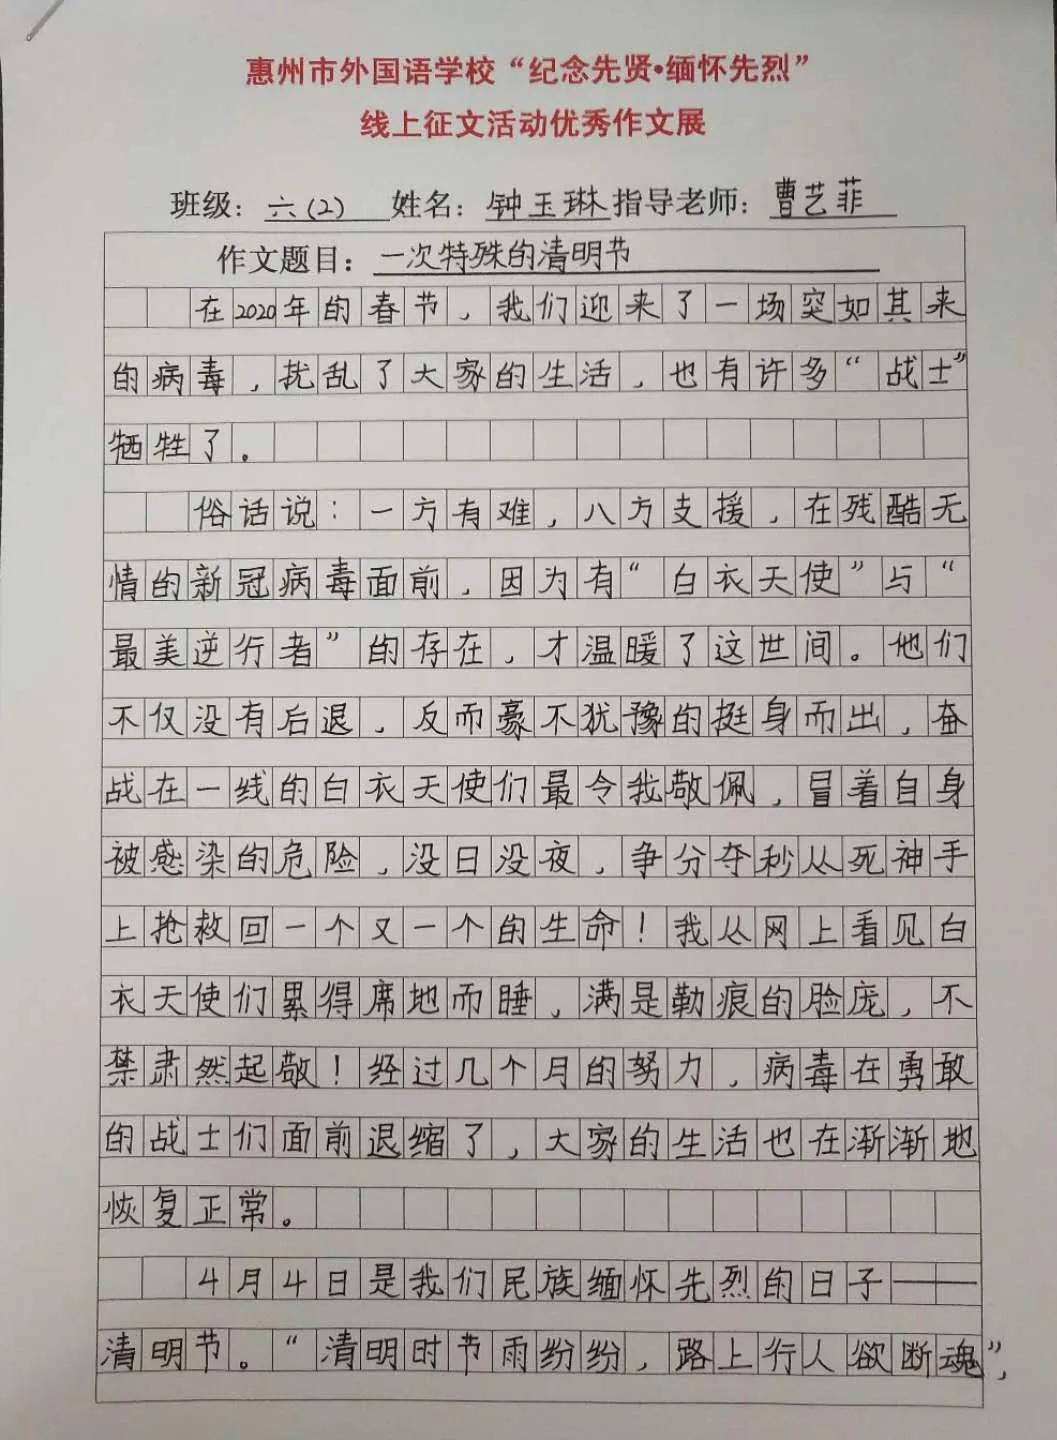 惠州市外国语学校“纪念先贤•缅怀先烈”
线上征文活动优秀作文展
班级：六(2) 姓名：钟玉琳 指导老师：曹艺菲
作文题目：一次特殊的清明节
在2020年的春节，我们迎来了一场突如其来
的病毒，扰乱了大家的生活，也有许多“战士”
牺牲了。
俗话说：一方有难，八方支援，在残酷无
情的新冠病毒面前，因为有“白衣天使”与“
最美逆行者”的存在，才温暖了这世间。他们
不仅没有后退，反而豪不犹豫的挺身而出，奋
战在一线的白衣天使们最令我敬佩，冒着自身
被感染的危险，没日没夜，争分夺秒从死神手
上抢救回一个又一个的生命！我从网上看见白
衣天使们累得席地而睡，满是勒痕的脸庞，不
禁肃然起敬！经过几个月的努力，病毒在勇敢
的战士们面前退缩了，大家的生活也在渐渐地
恢复正常。
4月4日是我们民族缅怀先烈的日子——
清明节。“清明时节雨纷纷，路上行人欲断魂”，